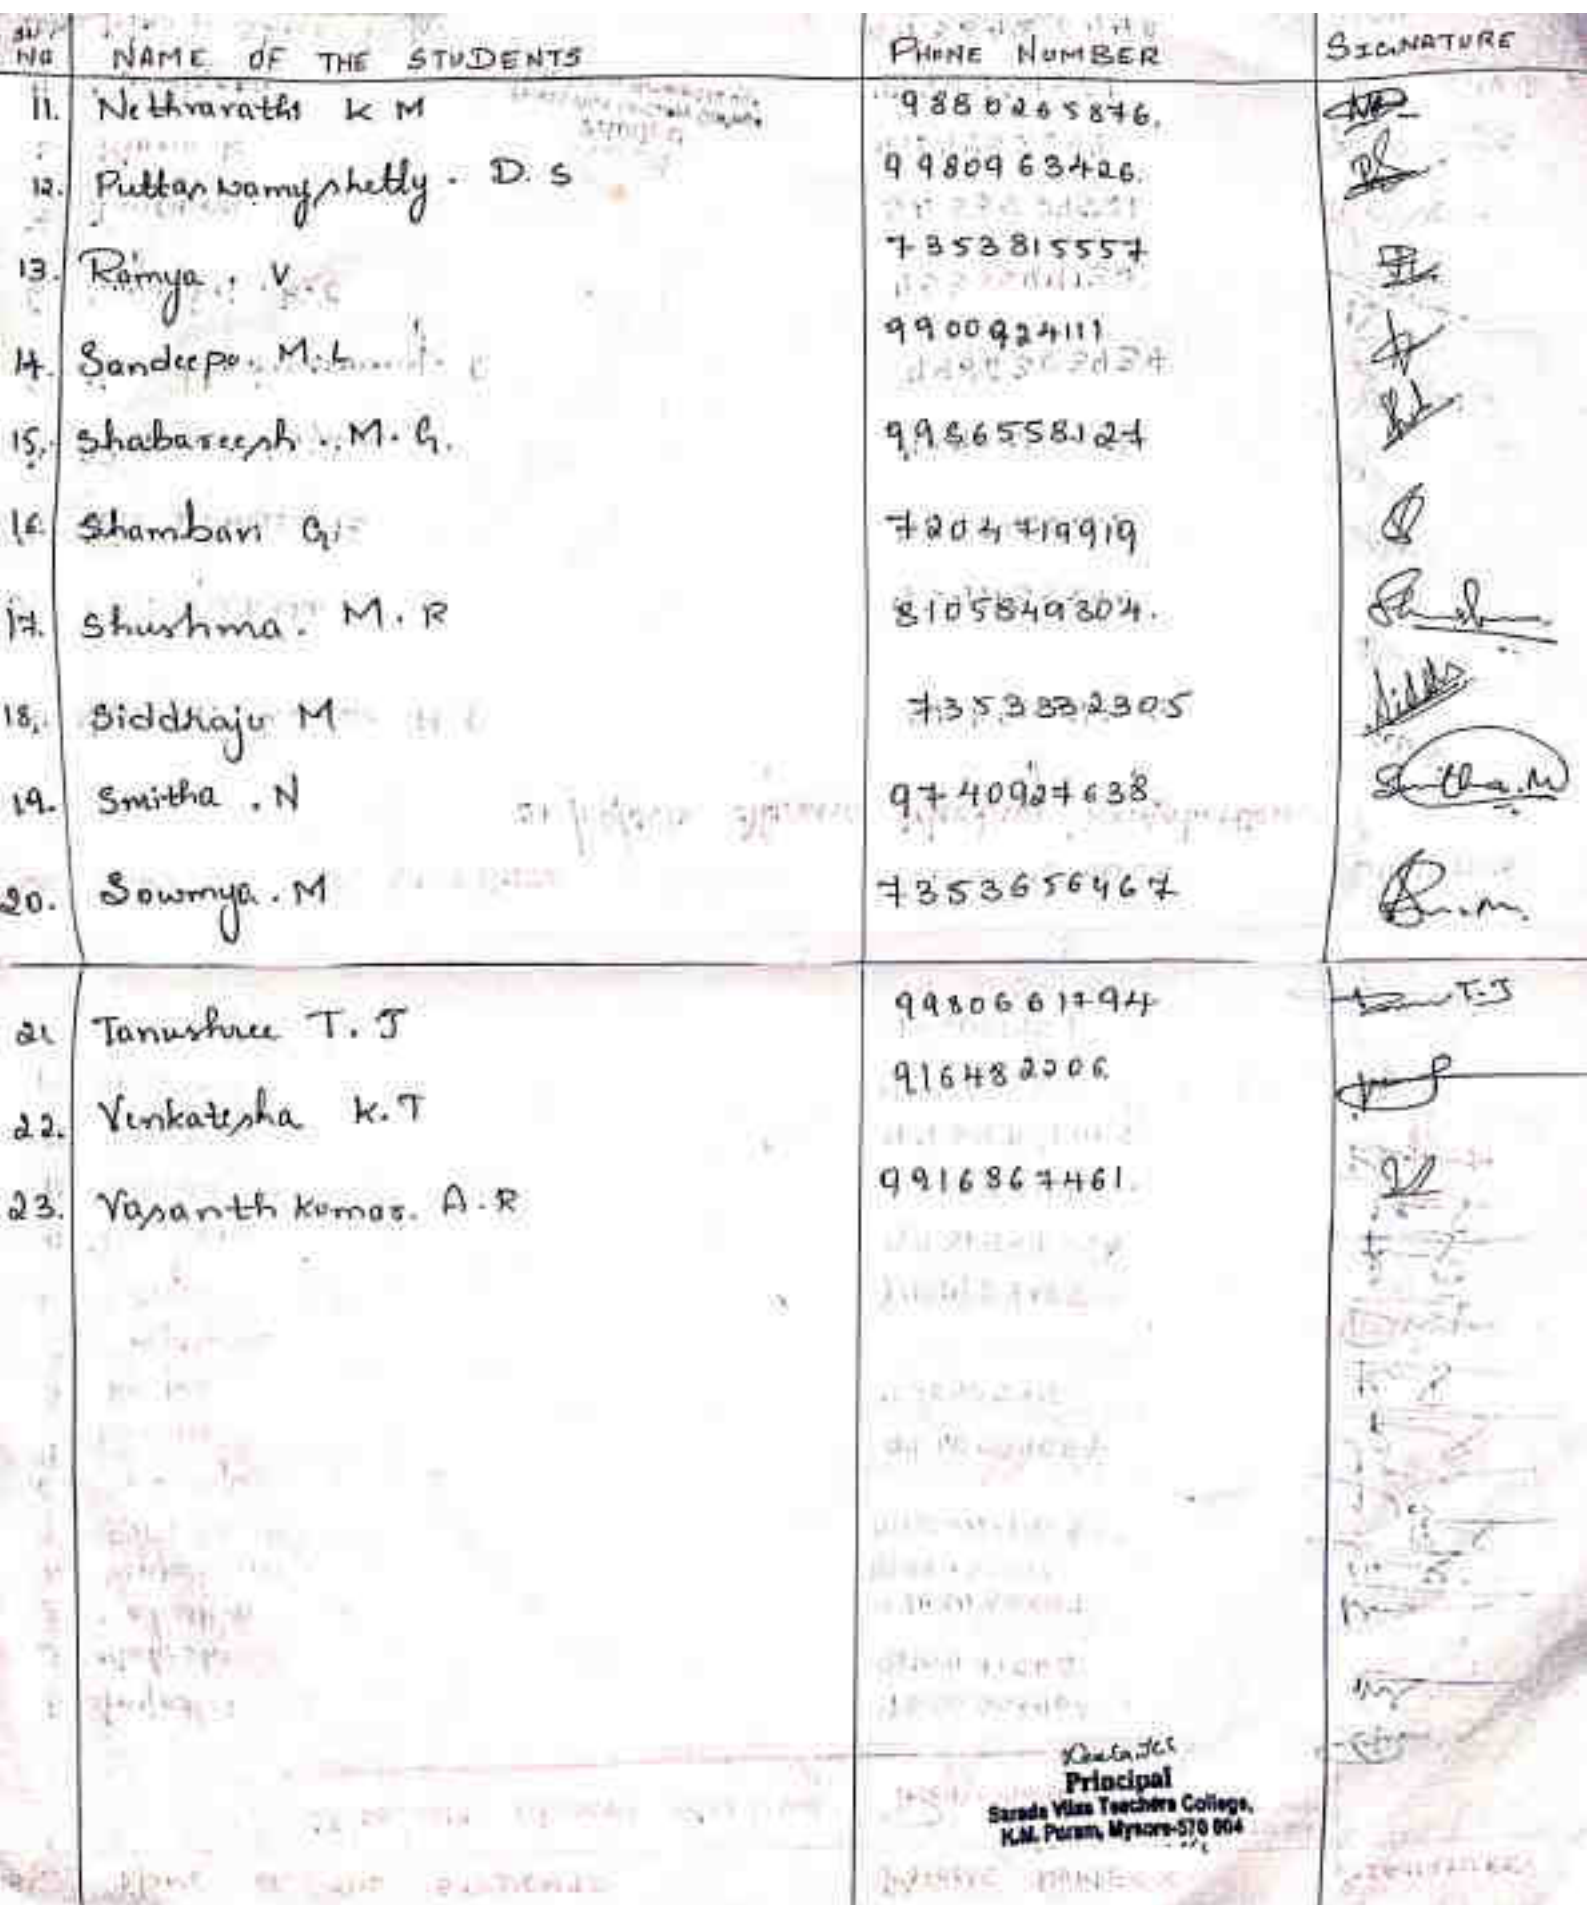 NO NAME OF THE STUDENTS PHONE NUMBER SIGNATURE
11. Nethravathi K M 9880265876.
12. Puttaswamyshetty. D. S 9980963426.
13. Ramya. V. 7353815557
14. Sandeepa. M. L 9900924111
15. Shabareesh. M. G. 9986558127
16. Shambavi G 7204719919
17. Shushma. M. R 8105849304.
18. Siddraju M 7353332305 Siddu
19. Smitha. N 9740927638. Smitha.N
20. Sowmya. M 7353656467
21 Tanushree T. J 9980661794 T.J
22. Venkatesha K.T 9164822206
23. Vasanth Kumar. A.R 9916867461.
Principal
Sarada Vilas Teachers College,
K.M. Puram, Mysore-570 004